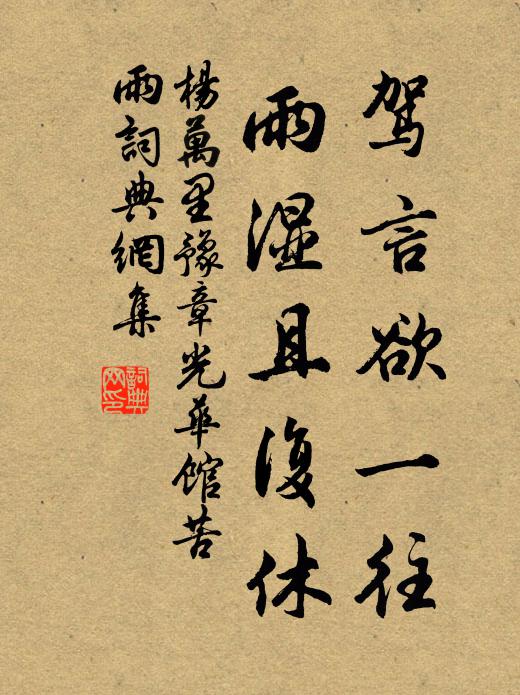 駕言欲一往
雨濕且復休
楊萬里豫章光華館苦
雨詞典網集
詞典
网印